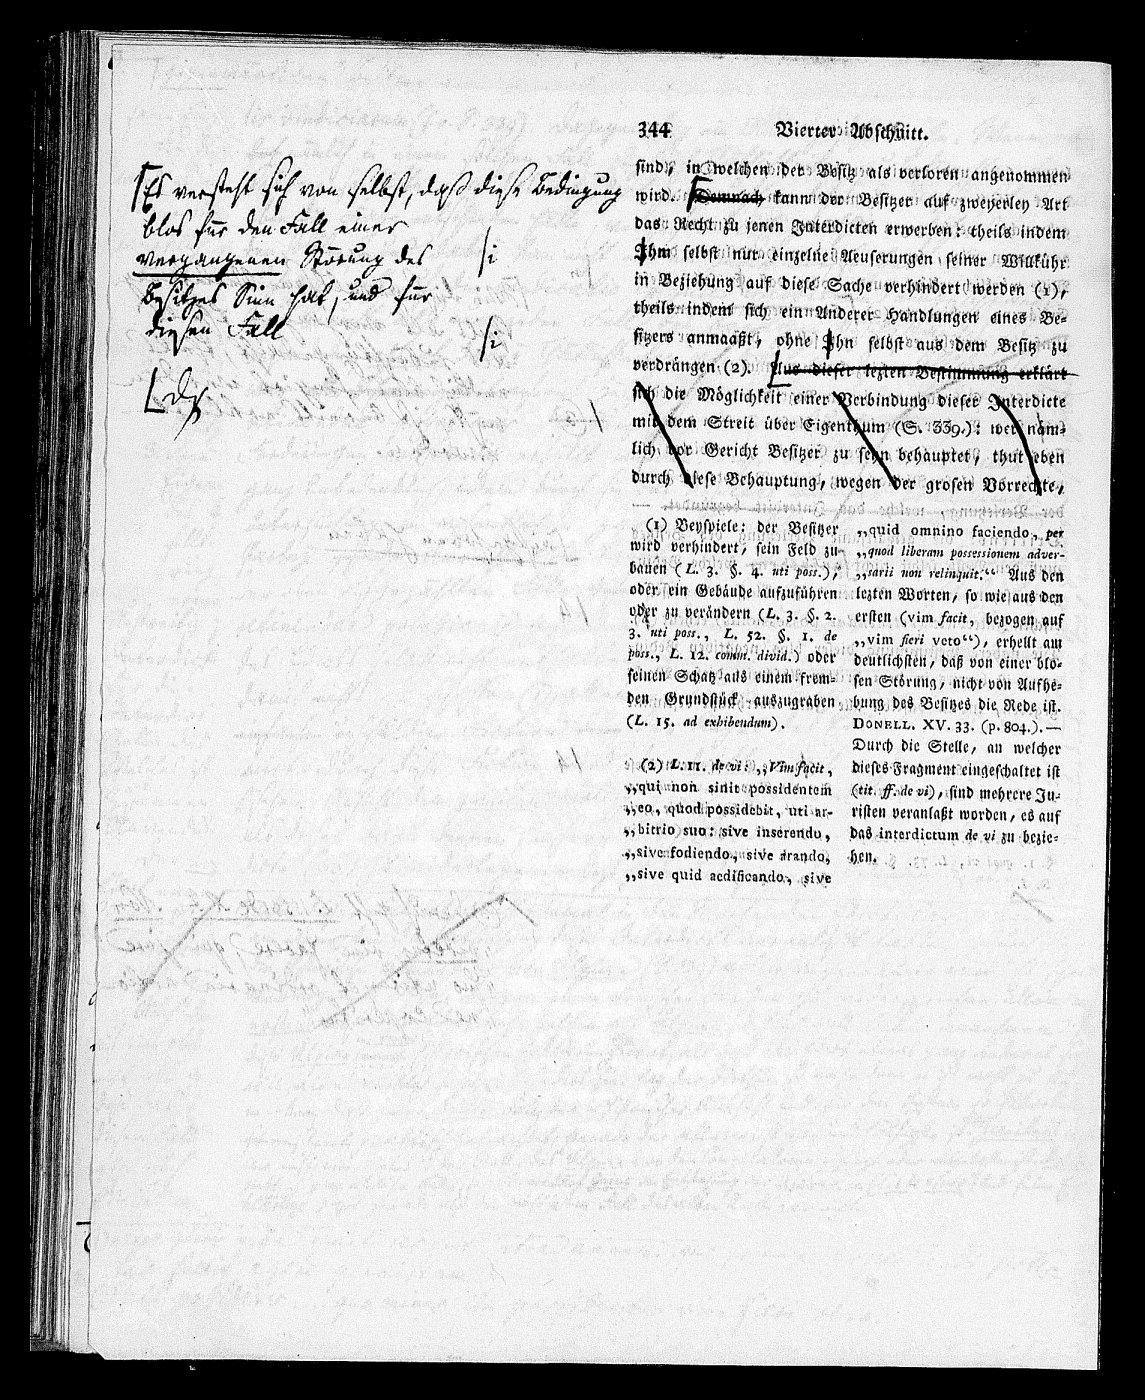 344 Vierter Abschnitt.
Es versteht sich von selbst, daß diese Bedingung
blos für den Fall einer
vergangenen Störung des
Besitzes Sinn hat, und für
diesen Fall
sind, in welchen der Besitz als verloren angenommen
wird. Demnach kann der Besitzer auf zweyerley Art
das Recht zu jenen Interdicten erwerben: theils indem
Ihm selbst nur einzelne Aeuserungen seiner Willkühr
in Beziehung auf diese Sache verhindert werden (1),
theils indem sich ein Anderer Handlungen eines Be-
sitzers anmaaßt, ohne Ihn selbst aus dem Besitz zu
verdrängen (2). Aus dieser lezten Bestimmung erklärt
sich die Möglichkeit einer Verbindung dieser Interdicte
mit dem Streit über Eigenthum (S. 339.): wer näm-
lich vor Gericht Besitzer zu seyn behauptet, thut eben
durch diese Behauptung, wegen der grosen Vorrechte,
(1) Beyspiele: der Besitzer
wird verhindert, sein Feld zu
bauen (L. 3. §. 4. uti poss.),
oder ein Gebäude aufzuführen
oder zu verändern (L. 3. §. 2.
3. uti poss., L. 52. §. 1. de
poss., L. 12. comm. divid.) oder
seinen Schatz aus einem frem-
den Grundstück auszugraben
(L. 15. ad exhibendum).
(2) L. 11. de vi: „Vim facit,
„qui non sinit possidentem
„eo, quod possidebit, uti ar-
„bitrio suo: sive inserendo,
„sive fodiendo, sive arando,
„sive quid aedificando, sive
„quid omnino faciendo, per
„quod liberam possessionem adver-
„sarii non relinquit.“ Aus den
lezten Worten, so wie aus den
ersten (vim facit, bezogen auf
„vim fieri veto“), erhellt am
deutlichsten, daß von einer blo-
sen Störung, nicht von Aufhe-
bung des Besitzes die Rede ist.
DONELL. XV. 33. (p. 804.). —
Durch die Stelle, an welcher
dieses Fragment eingeschaltet ist
(tit. ff. de vi), sind mehrere Ju-
risten veranlaßt worden, es auf
das interdictum de vi zu bezie-
hen.